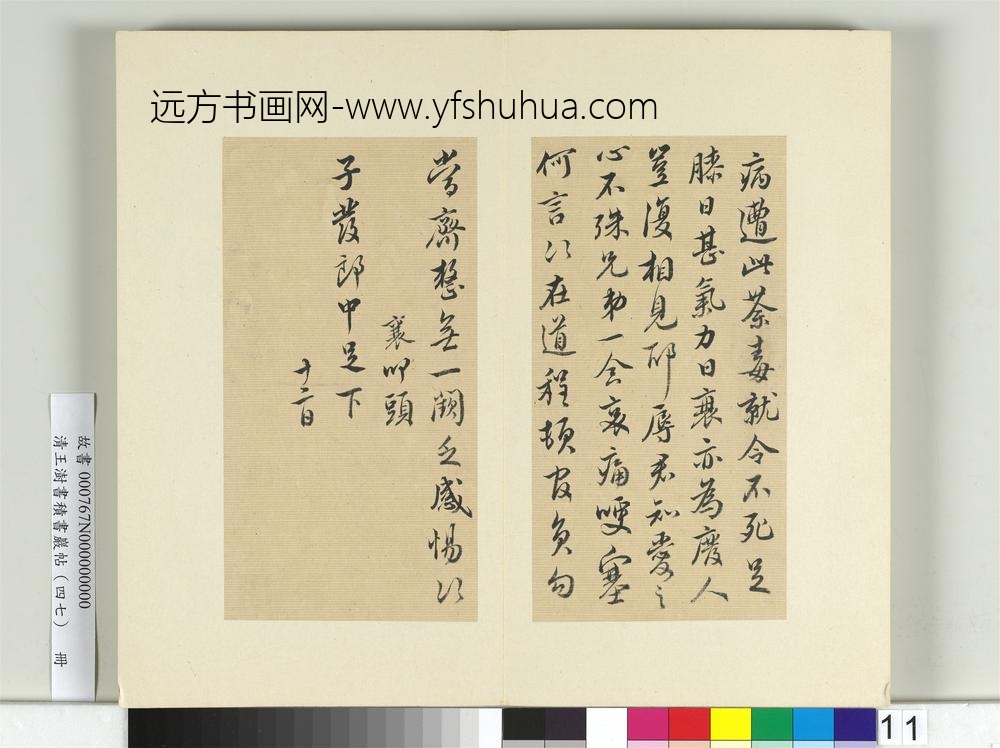 远方书画网-www.yfshuhua.com
病遭此荼毒就令不死足
膝日甚氣力日衰亦為廢人
豈復相見耶辱君知愛之
心不殊兄弟一念哀痛哽塞
何言以在道程頓負
當齋整無一闕乏感惕以
襄叩頭
子發郎中足下
十二日
故書 000767N000000000
清王澍書積書巖帖（四七） 冊
11